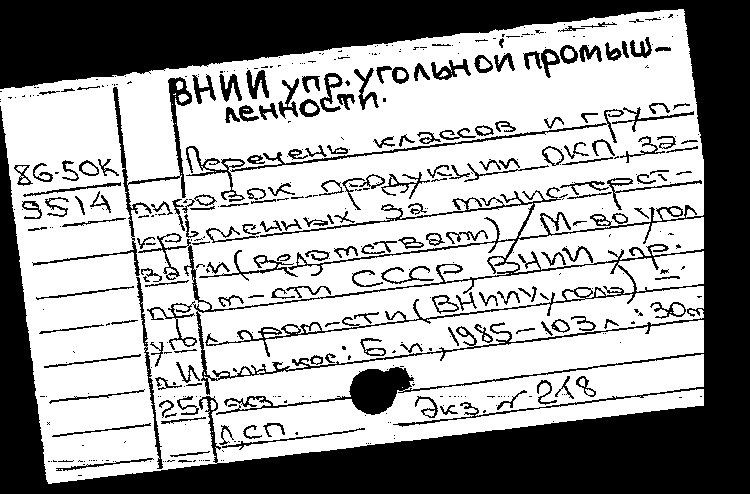 ВНИИ упр. угольной промыш-
ленности.
86-50К
9514
Перечень классов и груп-
пировок продукции ОКП, за-
крепленных за министерст-
вами (ведомствами) / М-во угол
пром-сти СССР, ВНИИ упр.
угол пром-сти (ВНИИУуголь). —
п. Ильинское: Б.и., 1985 - 103 л.; 30 см
250 экз.
Экз. № 218
Д, сп.